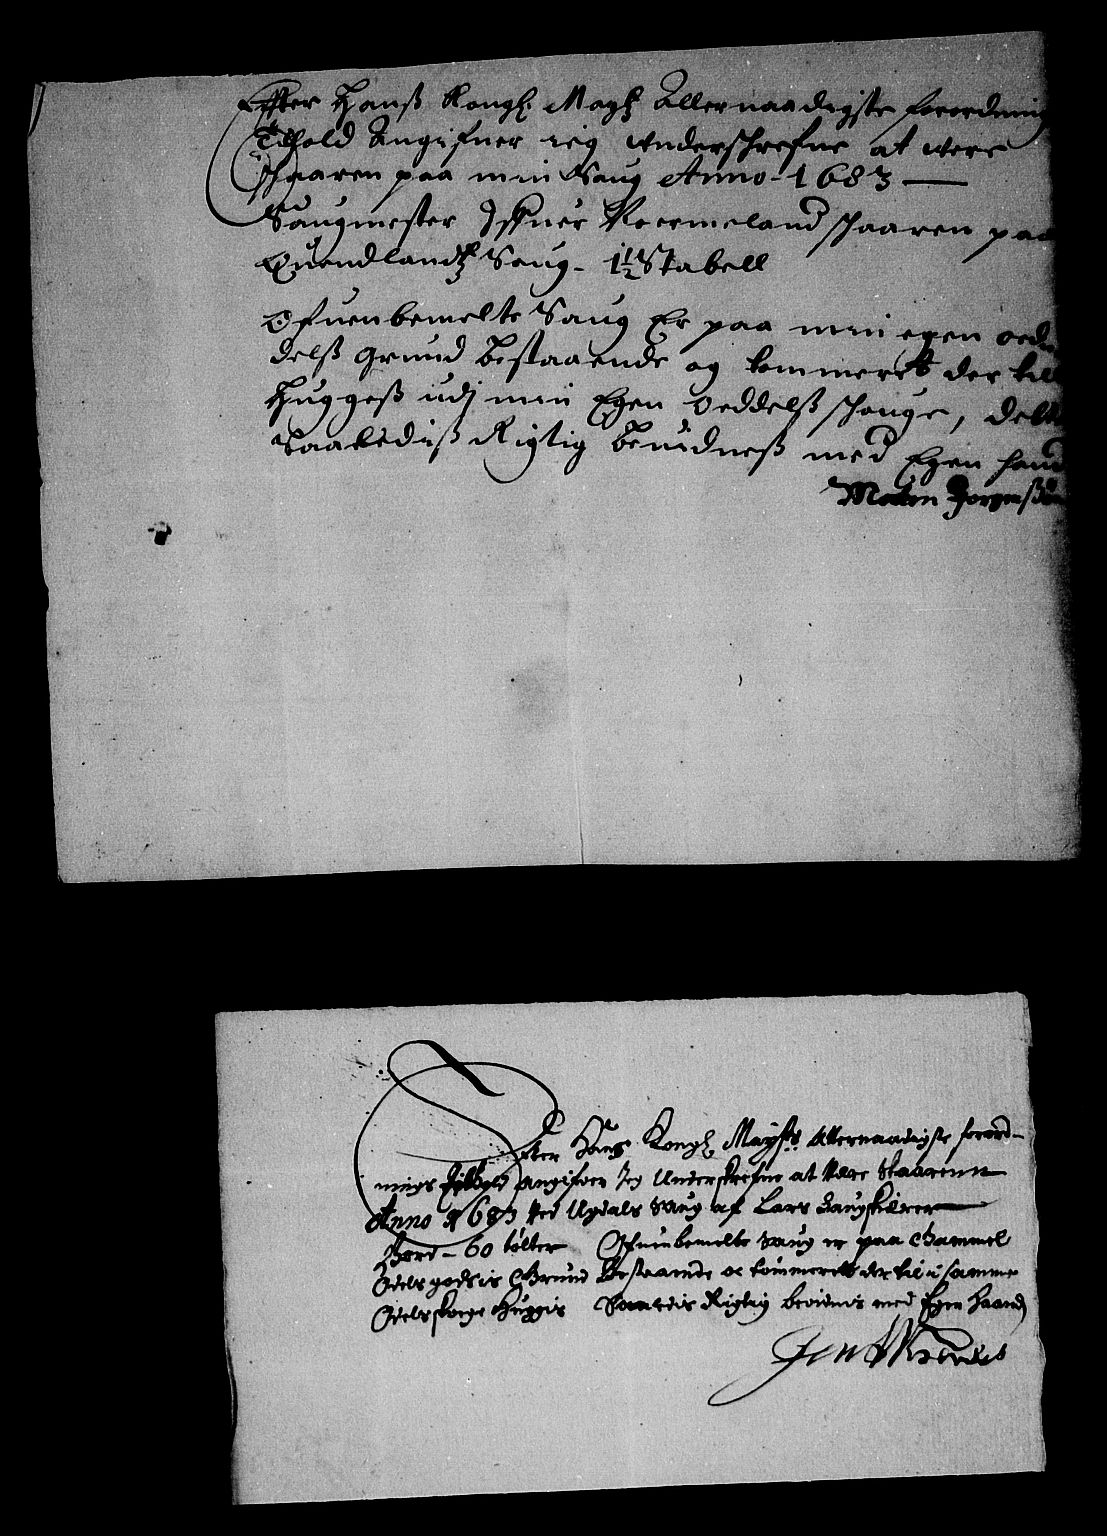 Effter Hanß Kongl. Maytz Allernaadigste forordning
Tilhold Angifuer ieg underschrefne at were
schaaren paa min Saug Anno - 1683 —
Saugmester Iffuer Voermeland schaaren paa
Quendlandtz Saug - 1½ Stabell
Ofuenbemelte Saug Er paa min egen oed
delß grund bestaaende og tommeret der till
Huggeß udj min Egen oeddelß schouge, dette
Saaledeß Rigtig beuidneß med Egen haand
Morten Jørgensøn
Efter Hans Kongl. Maysts allernaadigste forord-
nings tilhold angifuer Jeg Underskrefne at Vere Skaarenn
Anno 1683 Ved Updals Saug af Lars Saugskierer
Bord - 60 tolter Ofuenbemelte Saug er paa Gammel
Odels godsis Grund Bestaaende oc tommeret der til i samme
Odelskouge Huggis Saaledis Rigtig bevidnis med Egen Haand